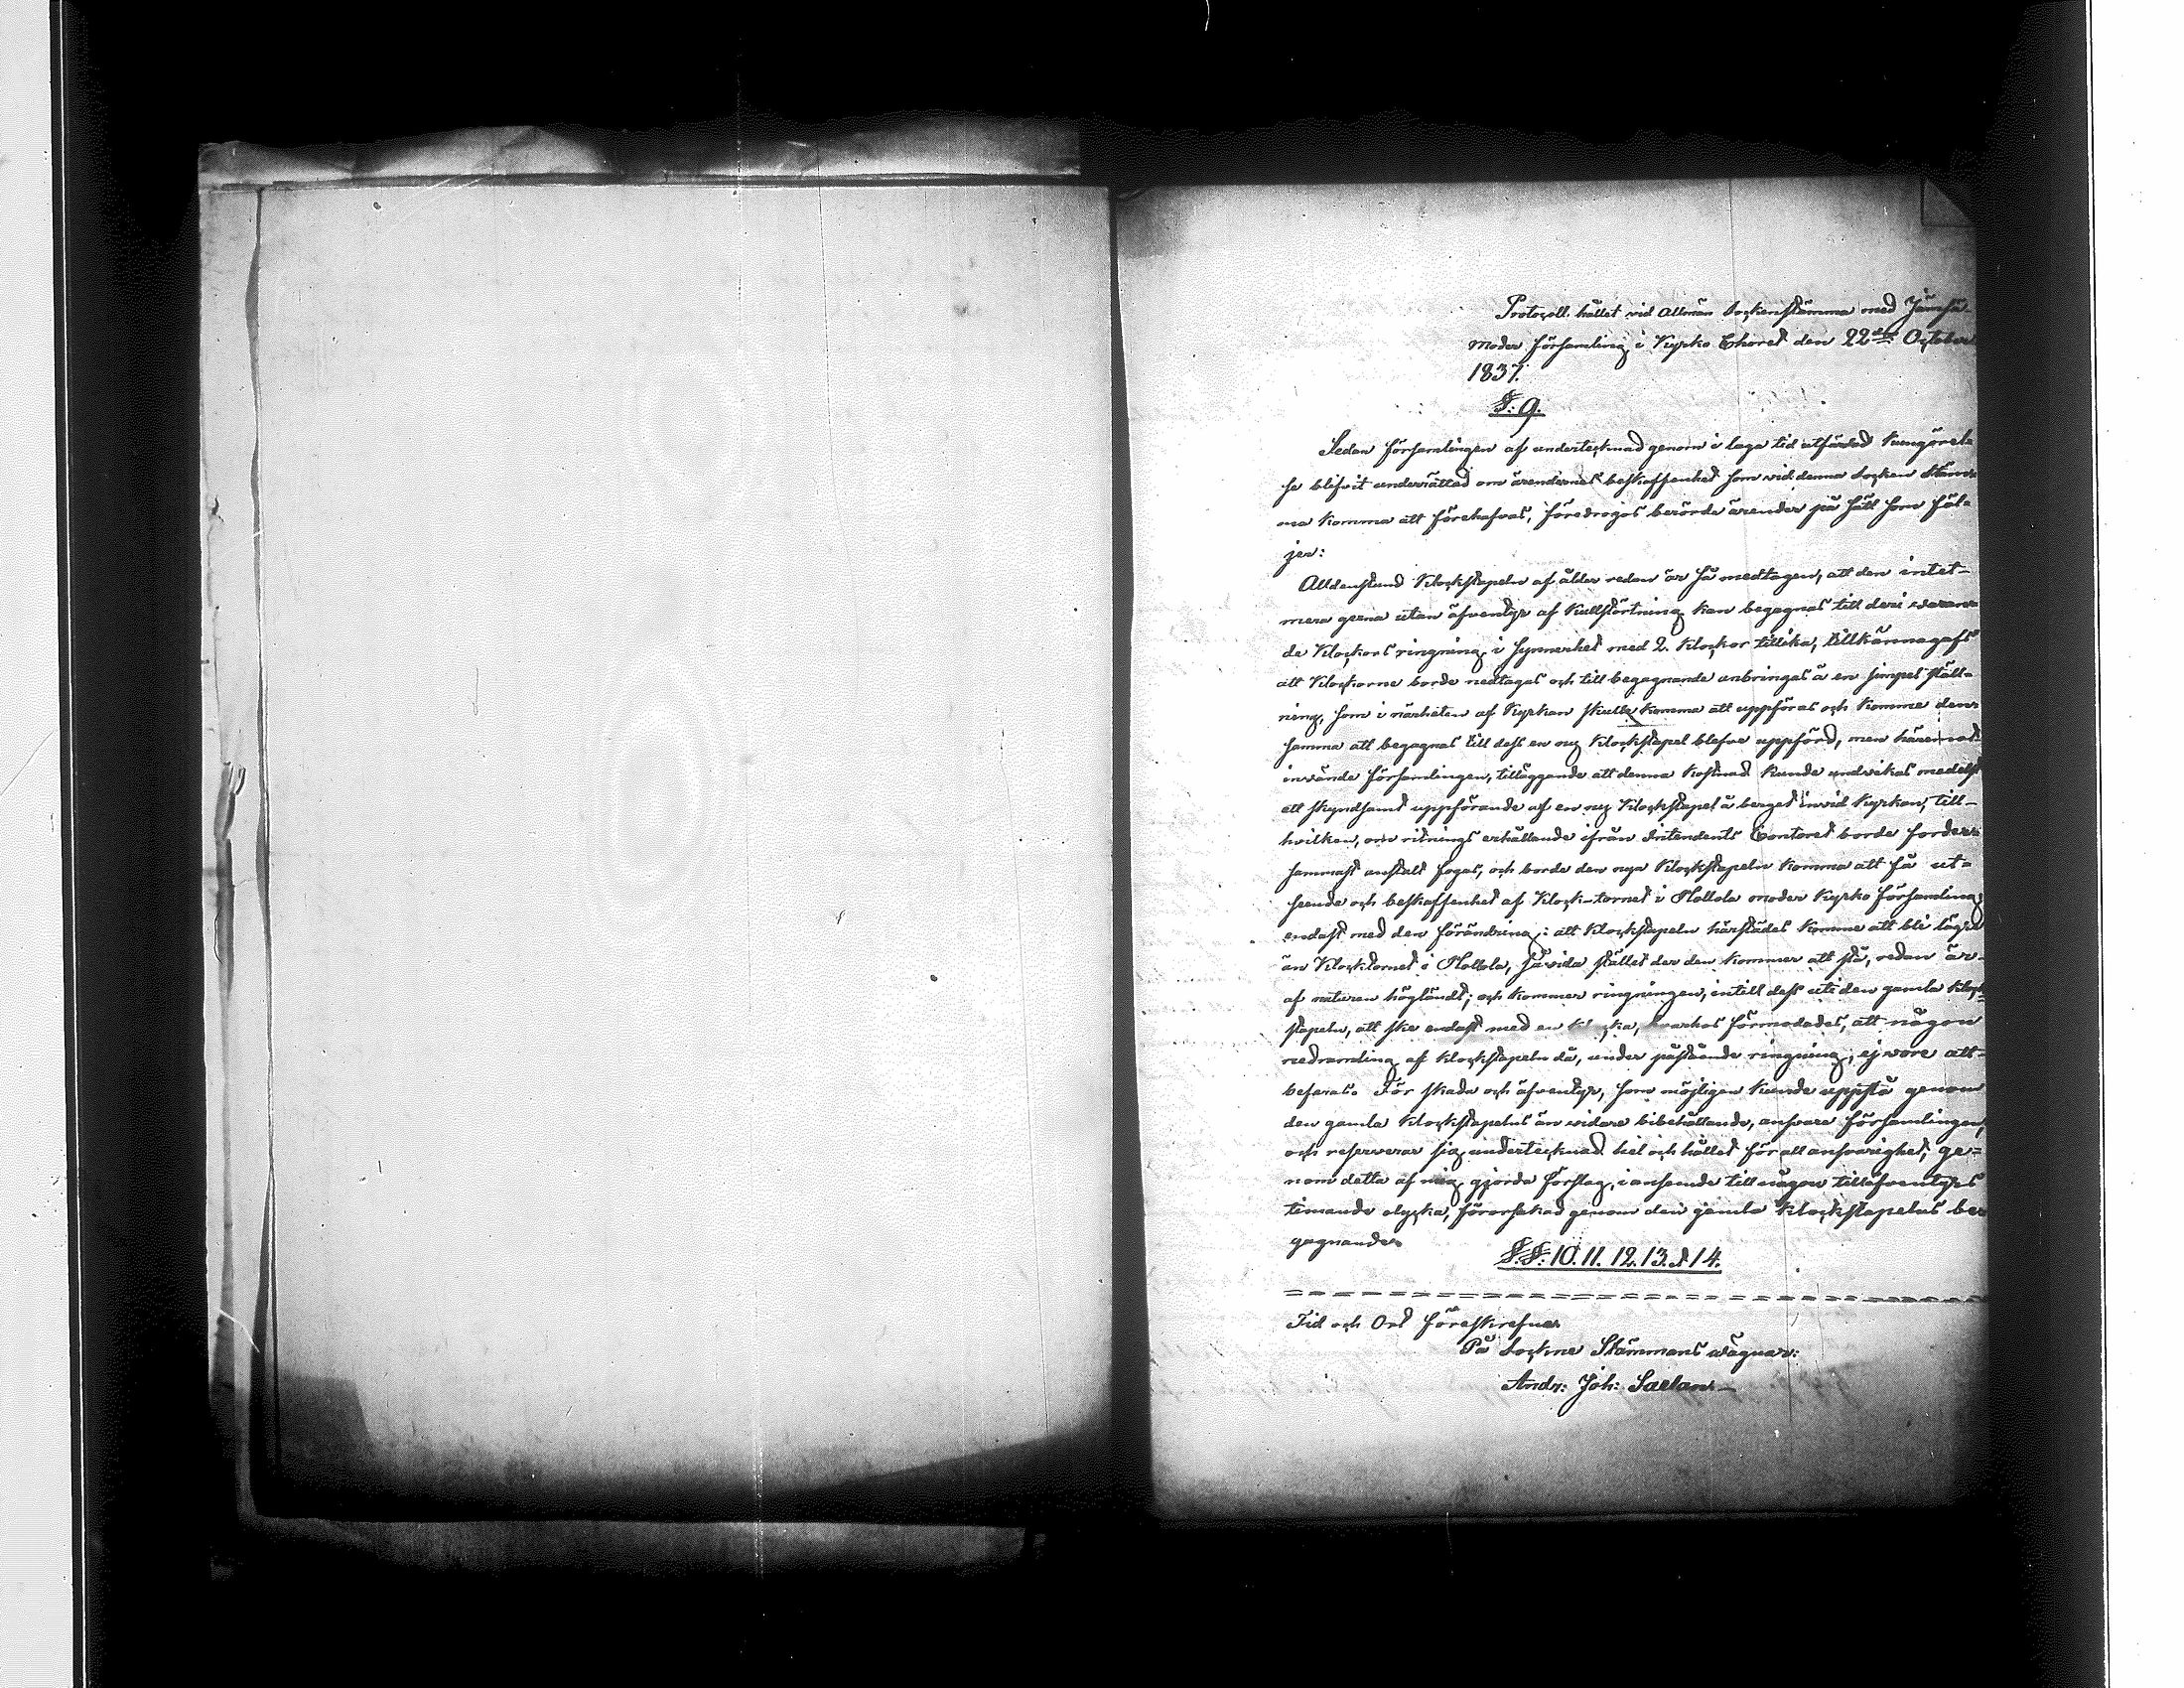 Protocoll, hållet vid Allmän Sockenstämma med Jämsä
Moder församling, i Kyrko Choret den 22dra October
1837.
§. 9.
Sedan församlingen af undertecknad genom i laga tid utfärdad Kungörel-
se blifvit underrättad om ärendernes beskaffenhet som vid denna Socken Stäm-
ma komma att förehafvas, föredrogos berörde ärender på sätt som föl-
jer:
Alldenstund Klockstapeln af ålder redan är så medtagen, att den intet-
mera gerna utan äfventyr af Kullstörtning kan begagnas till deri waran-
de Klockors ringning, i synnerhet med 2. Klockor tillika, tillkännagafs
att Klockorne borde nedtagas och till begagnande anbringas å en simpel ställ-
ning, som i närheten af Kyrkan skulle komma att uppföras och komme den-
samma att begagnas till dess en ny Klockstapel blefve uppförd, men häremot
invände församlingen, tilläggande att denna kostnad kunde undvikas medelst
ett skyndsamt uppförande af en ny Klockstapel å berget invid Kyrkan, till-
hvilken, om ritnings erhållande ifrån Intendents Contoret borde forder-
sammast anstalt fogas, och borde den nya Klockstapeln komma att få ut-
seende och beskaffenhet af Klock-tornet i Hollola moder Kyrko församling,
endast med den förändring: att Klockstapeln härstädes komme att bli lägre
än Klocktornet i Hollola, såvida stället der den kommer att stå, redan är-
af naturen högländt; och kommer ringningen, intill dess uti den gamla Klock-
stapeln, att ske endast med en Klocka, hvarhos förmodades, att någon
nedramling af Klockstapeln då, under påstående ringning, ej vore att-
befaras. För skada och äfventyr, som möjligen kunde uppstå genom
den gamla Klockstapelns än vidare bibehållande, ansvare församlingen,
och reserverar sig undertecknad hel och hållet för all ansvarighet, ge-
nom detta af mig gjorda förslag, i anseende till någon tilläfventyrs
timande olycka, förorsakad genom den gamla Klockstapelns be-
gagnande.
§.§. 10. 11. 12. 13. & 14.
Tid och Ort föreskrefne
På Sockne Stämmans wägnar:
Andr: Joh: Saelan.